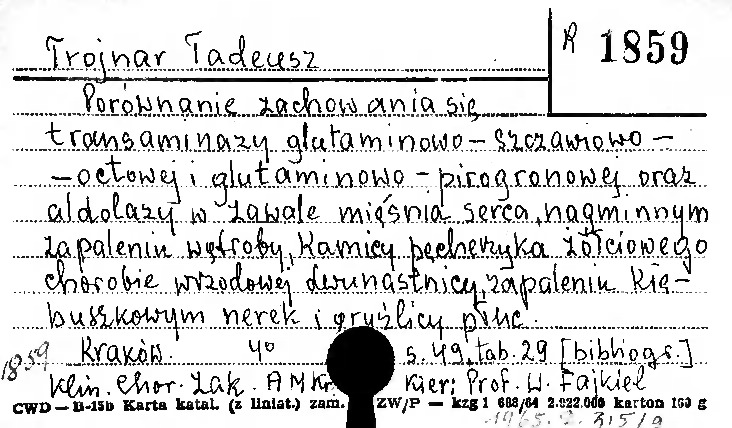 Trojnar Tadeusz
R 1859
Porównanie zachowania się
transaminazy glutaminowo - szczawiowo -
- octowej i glutaminowo - pirogronowej oraz
aldolazy w zawale mięśnia serca, nagminnym
zapaleniu wątroby, kamicy pęcherzyka żółciowego
chorobie wrzodowej dwunastnicy, zapaleniu kłę-
buszkowym nerek i gruźlicy płuc.
1859 Kraków. 4° s. 49, tab. 29 [bibliogr.]
Klin. Chor. Zak. AMKr. Kier: Prof. W. Fajkiel
CWD — B-15b Karta katal. (z liniat.) zam. ZW/P — kzg 1 698/64 2.922.000 karton 160 g
1965